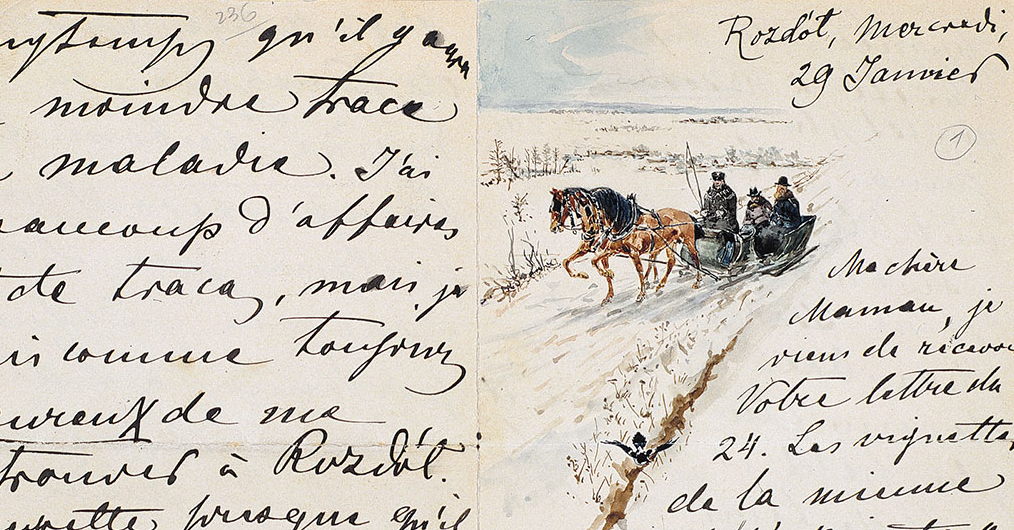 236
qu'il y aura
moindre trace
maladie. J'ai
beaucoup d'affaires
de tracas, mais je
suis comme toujours
heureux de me
trouver à Rozdół.
presque qu'il
Rozdół, Mercredi,
29 Janvier
1
Ma chère
Maman, je
viens de recevoir
Votre lettre du
24. Les vignettes
de la mienne